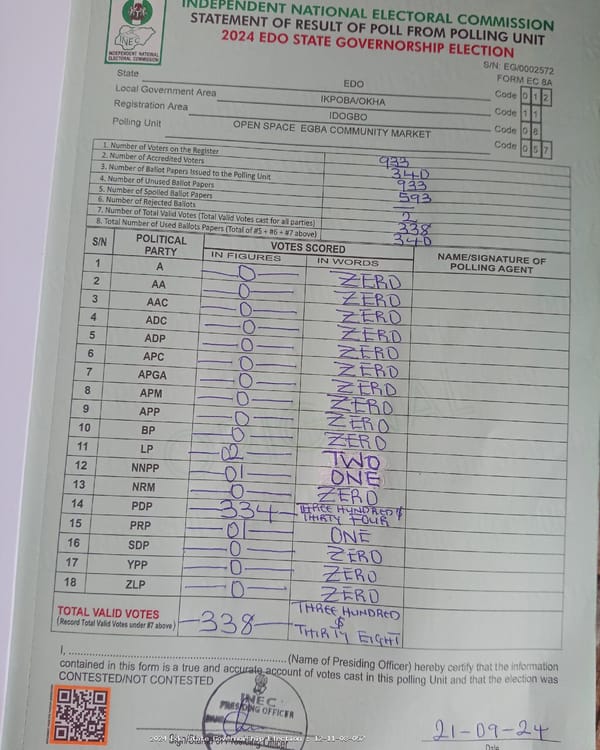 INDEPENDENT NATIONAL ELECTORAL COMMISSION
STATEMENT OF RESULT OF POLL FROM POLLING UNIT
2024 EDO STATE GOVERNORSHIP ELECTION
INEC
INDEPENDENT NATIONAL
ELECTORAL COMMISSION
S/N: EG/0002572
FORM EC 8A
State EDO Code 0 1 2
Local Government Area IKPOBA/OKHA Code 1 1
Registration Area IDOGBO Code 0 8
Polling Unit OPEN SPACE EGBA COMMUNITY MARKET Code 0 5 7
1. Number of Voters on the Register 933
2. Number of Accredited Voters 340
3. Number of Ballot Papers Issued to the Polling Unit 933
4. Number of Unused Ballot Papers 593
5. Number of Spoiled Ballot Papers —
6. Number of Rejected Ballots 2
7. Number of Total Valid Votes (Total Valid Votes cast for all parties) 338
8. Total Number of Used Ballots Papers (Total of #5 + #6 + #7 above) 340
S/N POLITICAL PARTY VOTES SCORED NAME/SIGNATURE OF POLLING AGENT
IN FIGURES IN WORDS
1 A 0 ZERO
2 AA 0 ZERO
3 AAC 0 ZERO
4 ADC 0 ZERO
5 ADP 0 ZERO
6 APC 0 ZERO
7 APGA 0 ZERO
8 APM 0 ZERO
9 APP 0 ZERO
10 BP 0 ZERO
11 LP 02 TWO
12 NNPP 01 ONE
13 NRM 0 ZERO
14 PDP 334 THREE HUNDRED $ THIRTY FOUR
15 PRP 01 ONE
16 SDP 0 ZERO
17 YPP 0 ZERO
18 ZLP 0 ZERO
TOTAL VALID VOTES 338 THREE HUNDRED $ THIRTY EIGHT
(Record Total Valid Votes under #7 above)
I, ............ (Name of Presiding Officer) hereby certify that the information
contained in this form is a true and accurate account of votes cast in this polling Unit and that the election was
CONTESTED/NOT CONTESTED
INEC
PRESIDING OFFICER
21-09-24
2024 Edo State Governorship Election - 12-11-08-057
Date